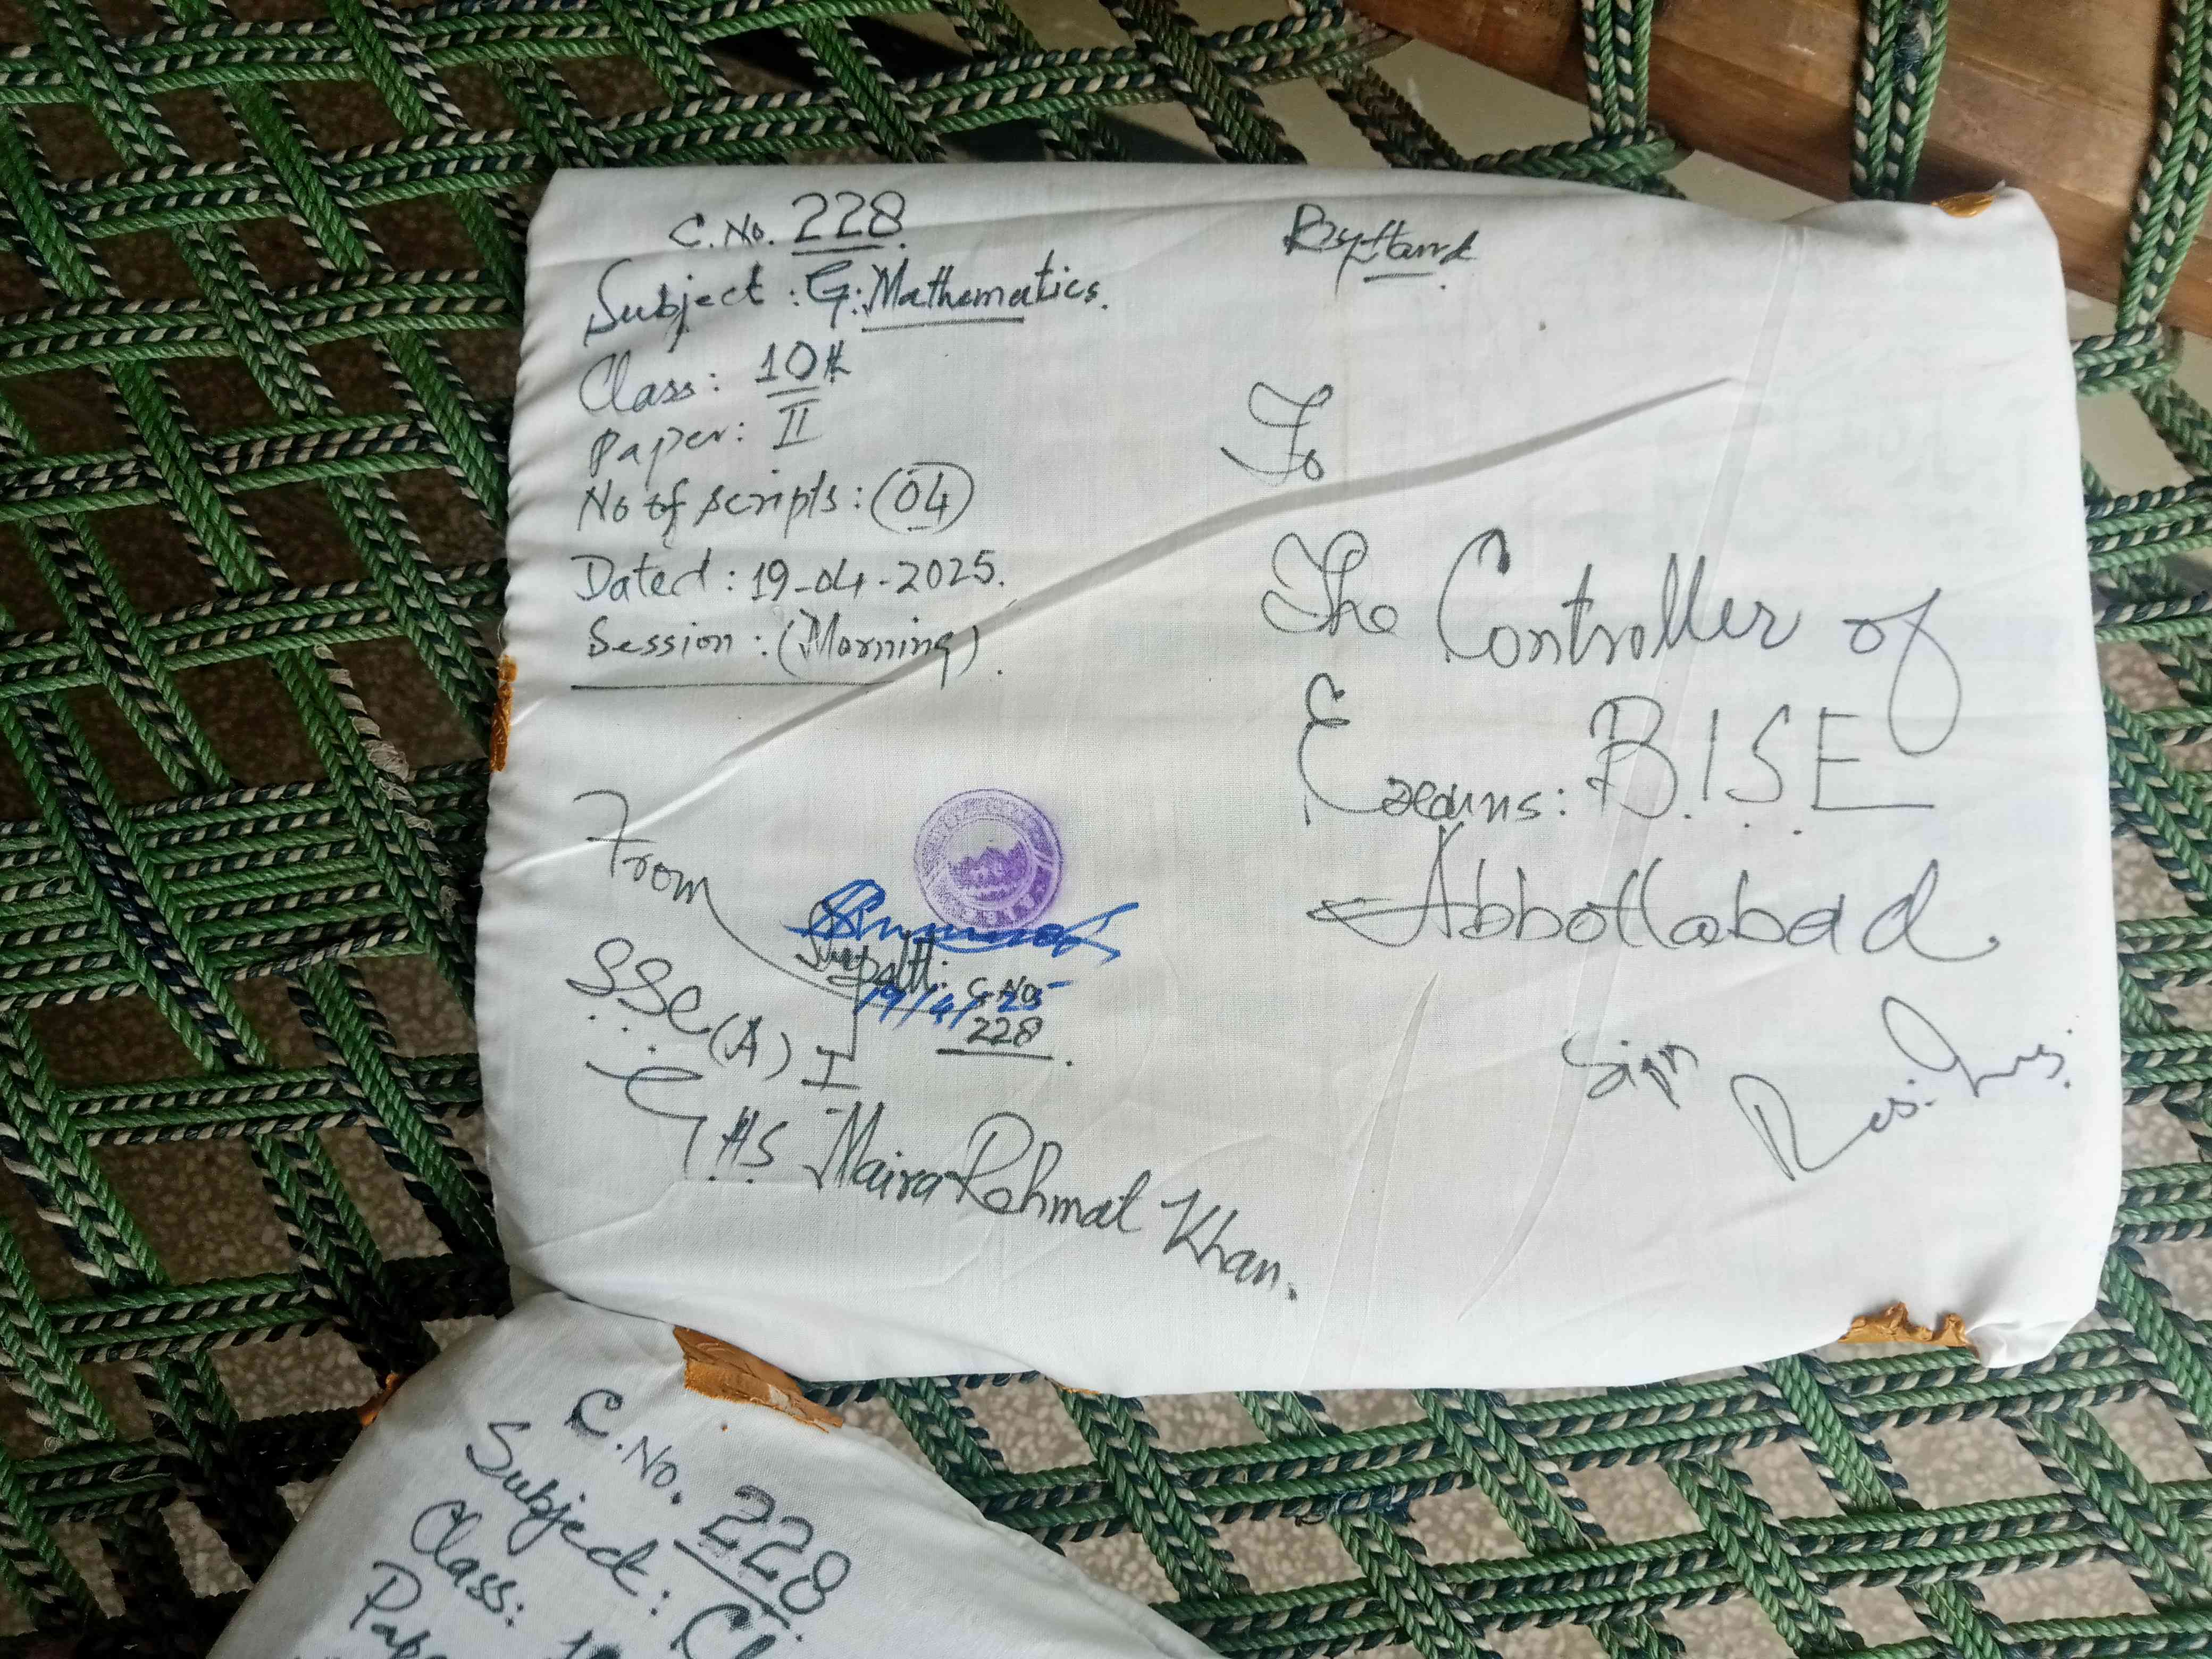 C.No. 228
Subject : G. Mathematics.
Class : 10th
Paper : II
No of scripts : 04
Dated : 19-04-2025.
Session : (Morning).
By Hand
To
The Controller of
Exams: B.I.S.E
Abbottabad.
Sign Res. Ins.
From
Supdtt:
19/4/25
C.No
228
SSC (A) I
G.H.S Maira Rehmat Khan.
C.No. 228
Subject :
Class :